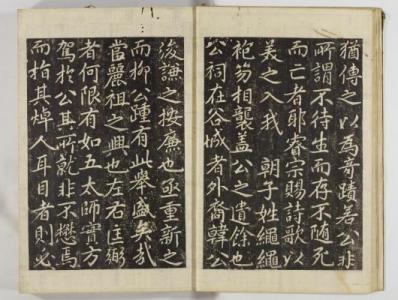 猶傳之以為奇蹟若公非
所謂不待生而存不隨死
而亡者耶睿宗賜詩歌以
美之入我　朝子姓繩繩
袍笏相襲蓋公之遺餘也
公祠在谷城者外裔韓公
浚謙之按廉也亟重新之
而柳公踵有此舉盛矣哉
當麗祖之興也左右匡弼
者何限有如五太師實方
駕於公其所就非不懋焉
而指其焯人耳目者則必